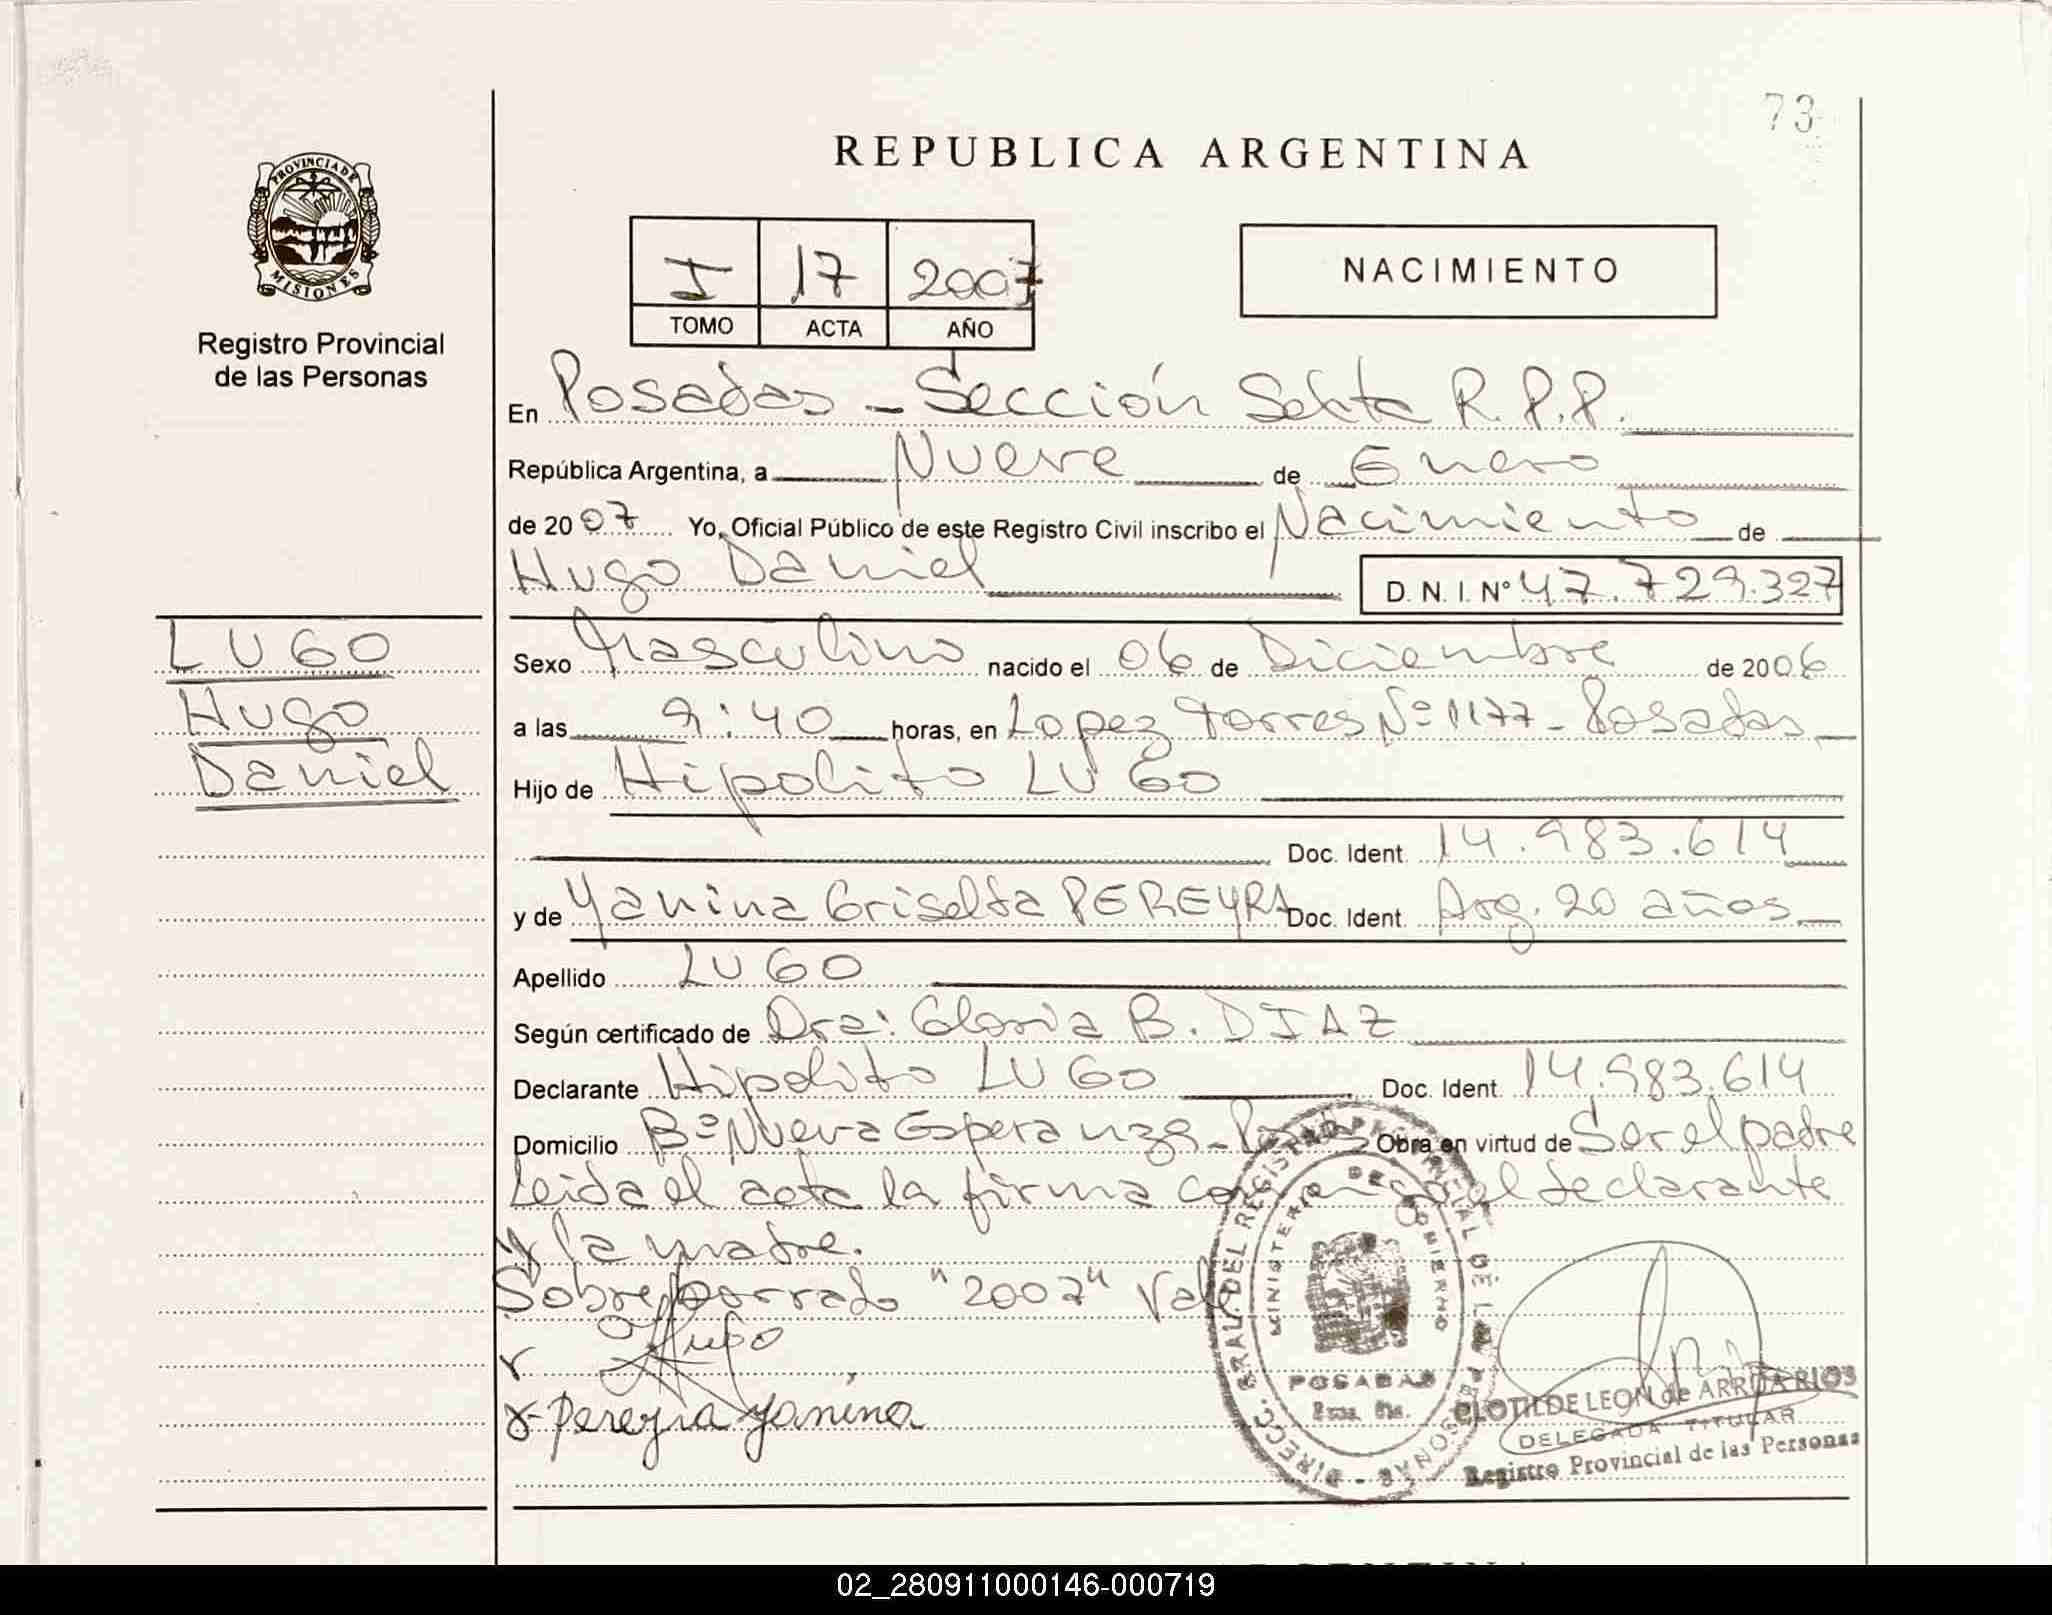 73
REPUBLICA ARGENTINA
PROVINCIA DE
MISIONES
Registro Provincial
de las Personas
I 17 2007
TOMO ACTA AÑO
NACIMIENTO
En Posadas - Sección Sexta R.P.P.
República Argentina, a Nueve de Enero
de 2007 Yo, Oficial Público de este Registro Civil inscribo el Nacimiento de
Hugo Daniel D. N. I. Nº 47.729.327
LUGO
Hugo
Daniel
Sexo Masculino nacido el 06 de Diciembre de 2006
a las 9:40 horas, en Lopez Torres Nº 1177 - Posadas
Hijo de Hipolito LUGO
Doc. Ident. 14.983.614
y de Yanina Griselda PEREYRA Doc. Ident. Arg. 20 años
Apellido LUGO
Según certificado de Dra: Gloria B. DIAZ
Declarante Hipolito LUGO Doc. Ident. 14.983.614
Domicilio Bº Nueva Esperanza - Obra en virtud de Ser el padre
Leida el acta la firma el declarante
y la madre.
Sobreborrado "2007" Vale
Lugo
Pereyra Yanina
DIRECC. GRAL. DEL REGISTRO DE LAS PERSONAS
MINISTERIO DE GOBIERNO
POSADAS
CLOTILDE LEON de ARRUA RIOS
DELEGADA TITULAR
Registro Provincial de las Personas
02_280911000146-000719